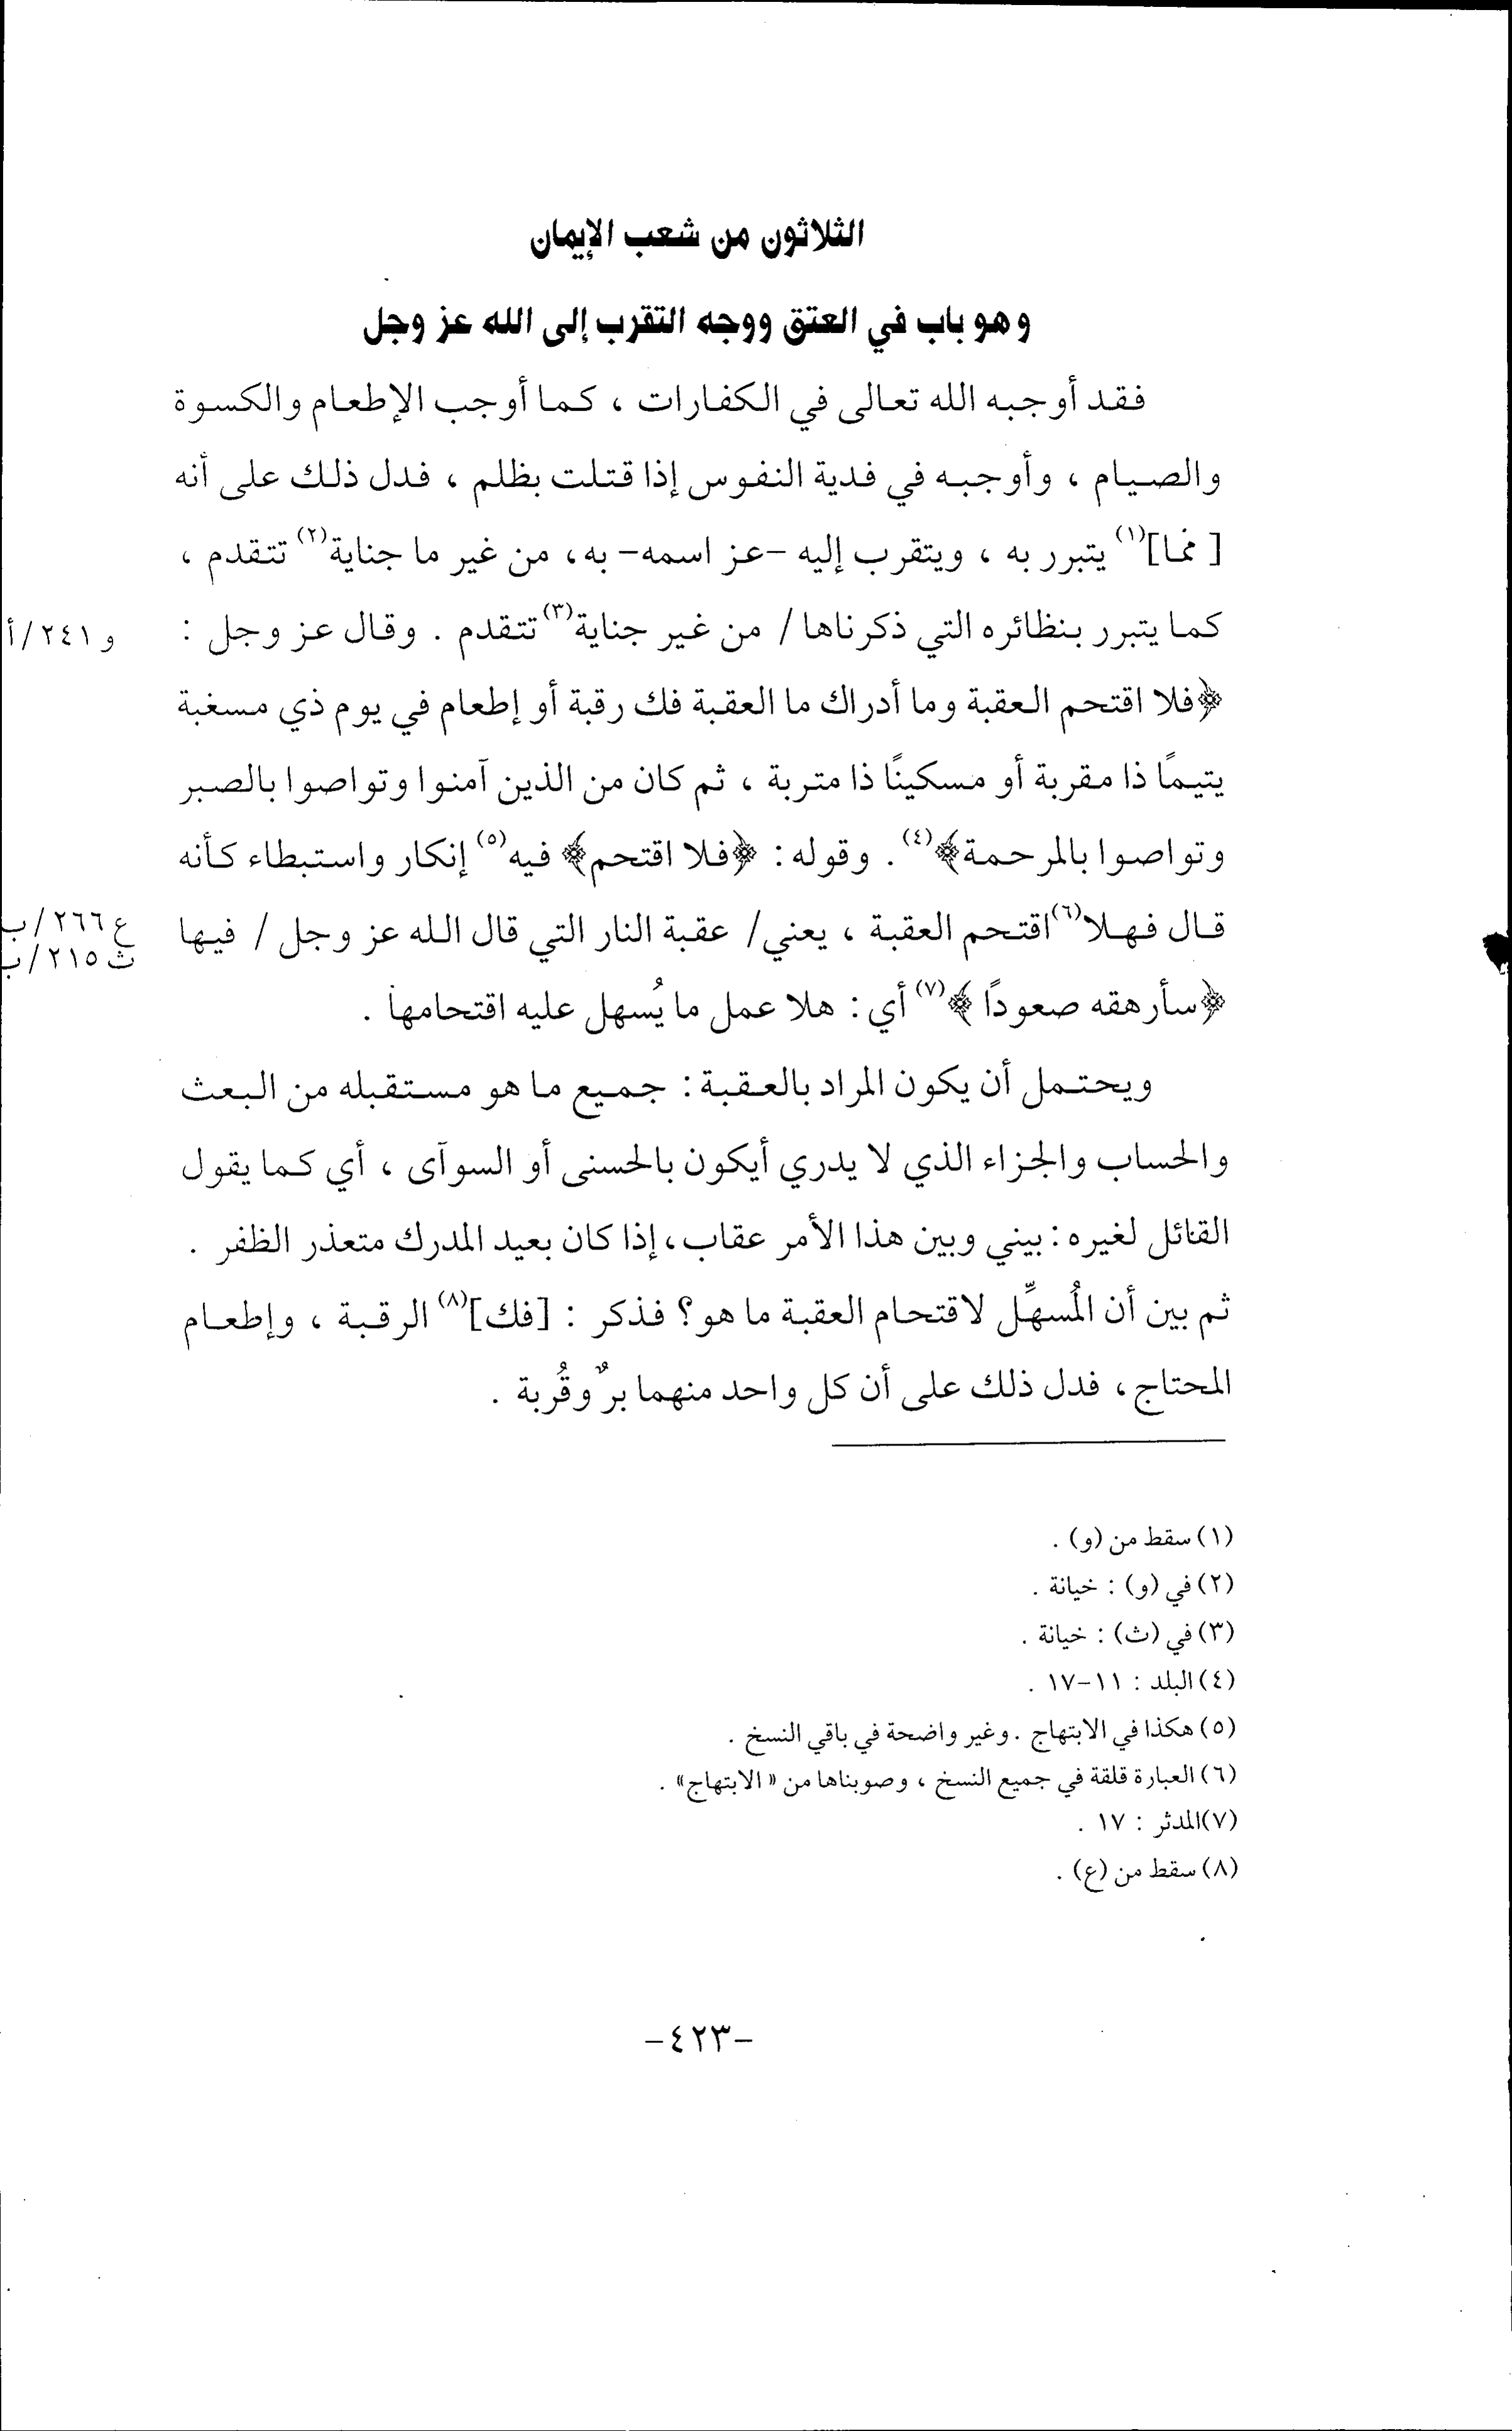 الثلاثون من شعب الإيمان
وهو باب في العتق ووجه التقرب إلى الله عز وجل
فقد أوجبه الله تعالى في الكفارات ، كما أوجب الإطعام والكسوة
والصيام ، وأوجبه في فدية النفوس إذا قتلت بظلم ، فدل ذلك على أنه
[مما](١) يتبرر به ، ويتقرب إليه -عز اسمه- به، من غير ما جناية(٢) تتقدم ،
كما يتبرر بنظائره التي ذكرناها / من غير جناية(٣) تتقدم . وقال عز وجل :
و ٢٤١/أ
﴿فلا اقتحم العقبة وما أدراك ما العقبة فك رقبة أو إطعام في يوم ذي مسغبة
يتيمًا ذا مقربة أو مسكينًا ذا متربة ، ثم كان من الذين آمنوا وتواصوا بالصبر
وتواصوا بالمرحمة﴾(٤) . وقوله : ﴿فلا اقتحم﴾ فيه(٥) إنكار واستبطاء كأنه
قال فهلا(٦) اقتحم العقبة ، يعني/ عقبة النار التي قال الله عز وجل / فيها
ع ٢٦٦/ب
ث ٢١٥/ب
﴿سأرهقه صعودًا ﴾(٧) أي : هلا عمل ما يُسهل عليه اقتحامها .
ويحتمل أن يكون المراد بالعقبة : جميع ما هو مستقبله من البعث
والحساب والجزاء الذي لا يدري أيكون بالحسنى أو السوآى ، أي كما يقول
القائل لغيره : بيني وبين هذا الأمر عقاب، إذا كان بعيد المدرك متعذر الظفر .
ثم بين أن المُسهِّل لاقتحام العقبة ما هو؟ فذكر : [فك](٨) الرقبة ، وإطعام
المحتاج ، فدل ذلك على أن كل واحد منهما برٌ وقُربة .
(١) سقط من (و) .
(٢) في (و) : خيانة .
(٣) في (ث) : خيانة .
(٤) البلد : ١١-١٧ .
(٥) هكذا في الابتهاج . وغير واضحة في باقي النسخ .
(٦) العبارة قلقة في جميع النسخ ، وصوبناها من «الابتهاج» .
(٧)المدثر : ١٧ .
(٨) سقط من (ع) .
-٤٢٣-